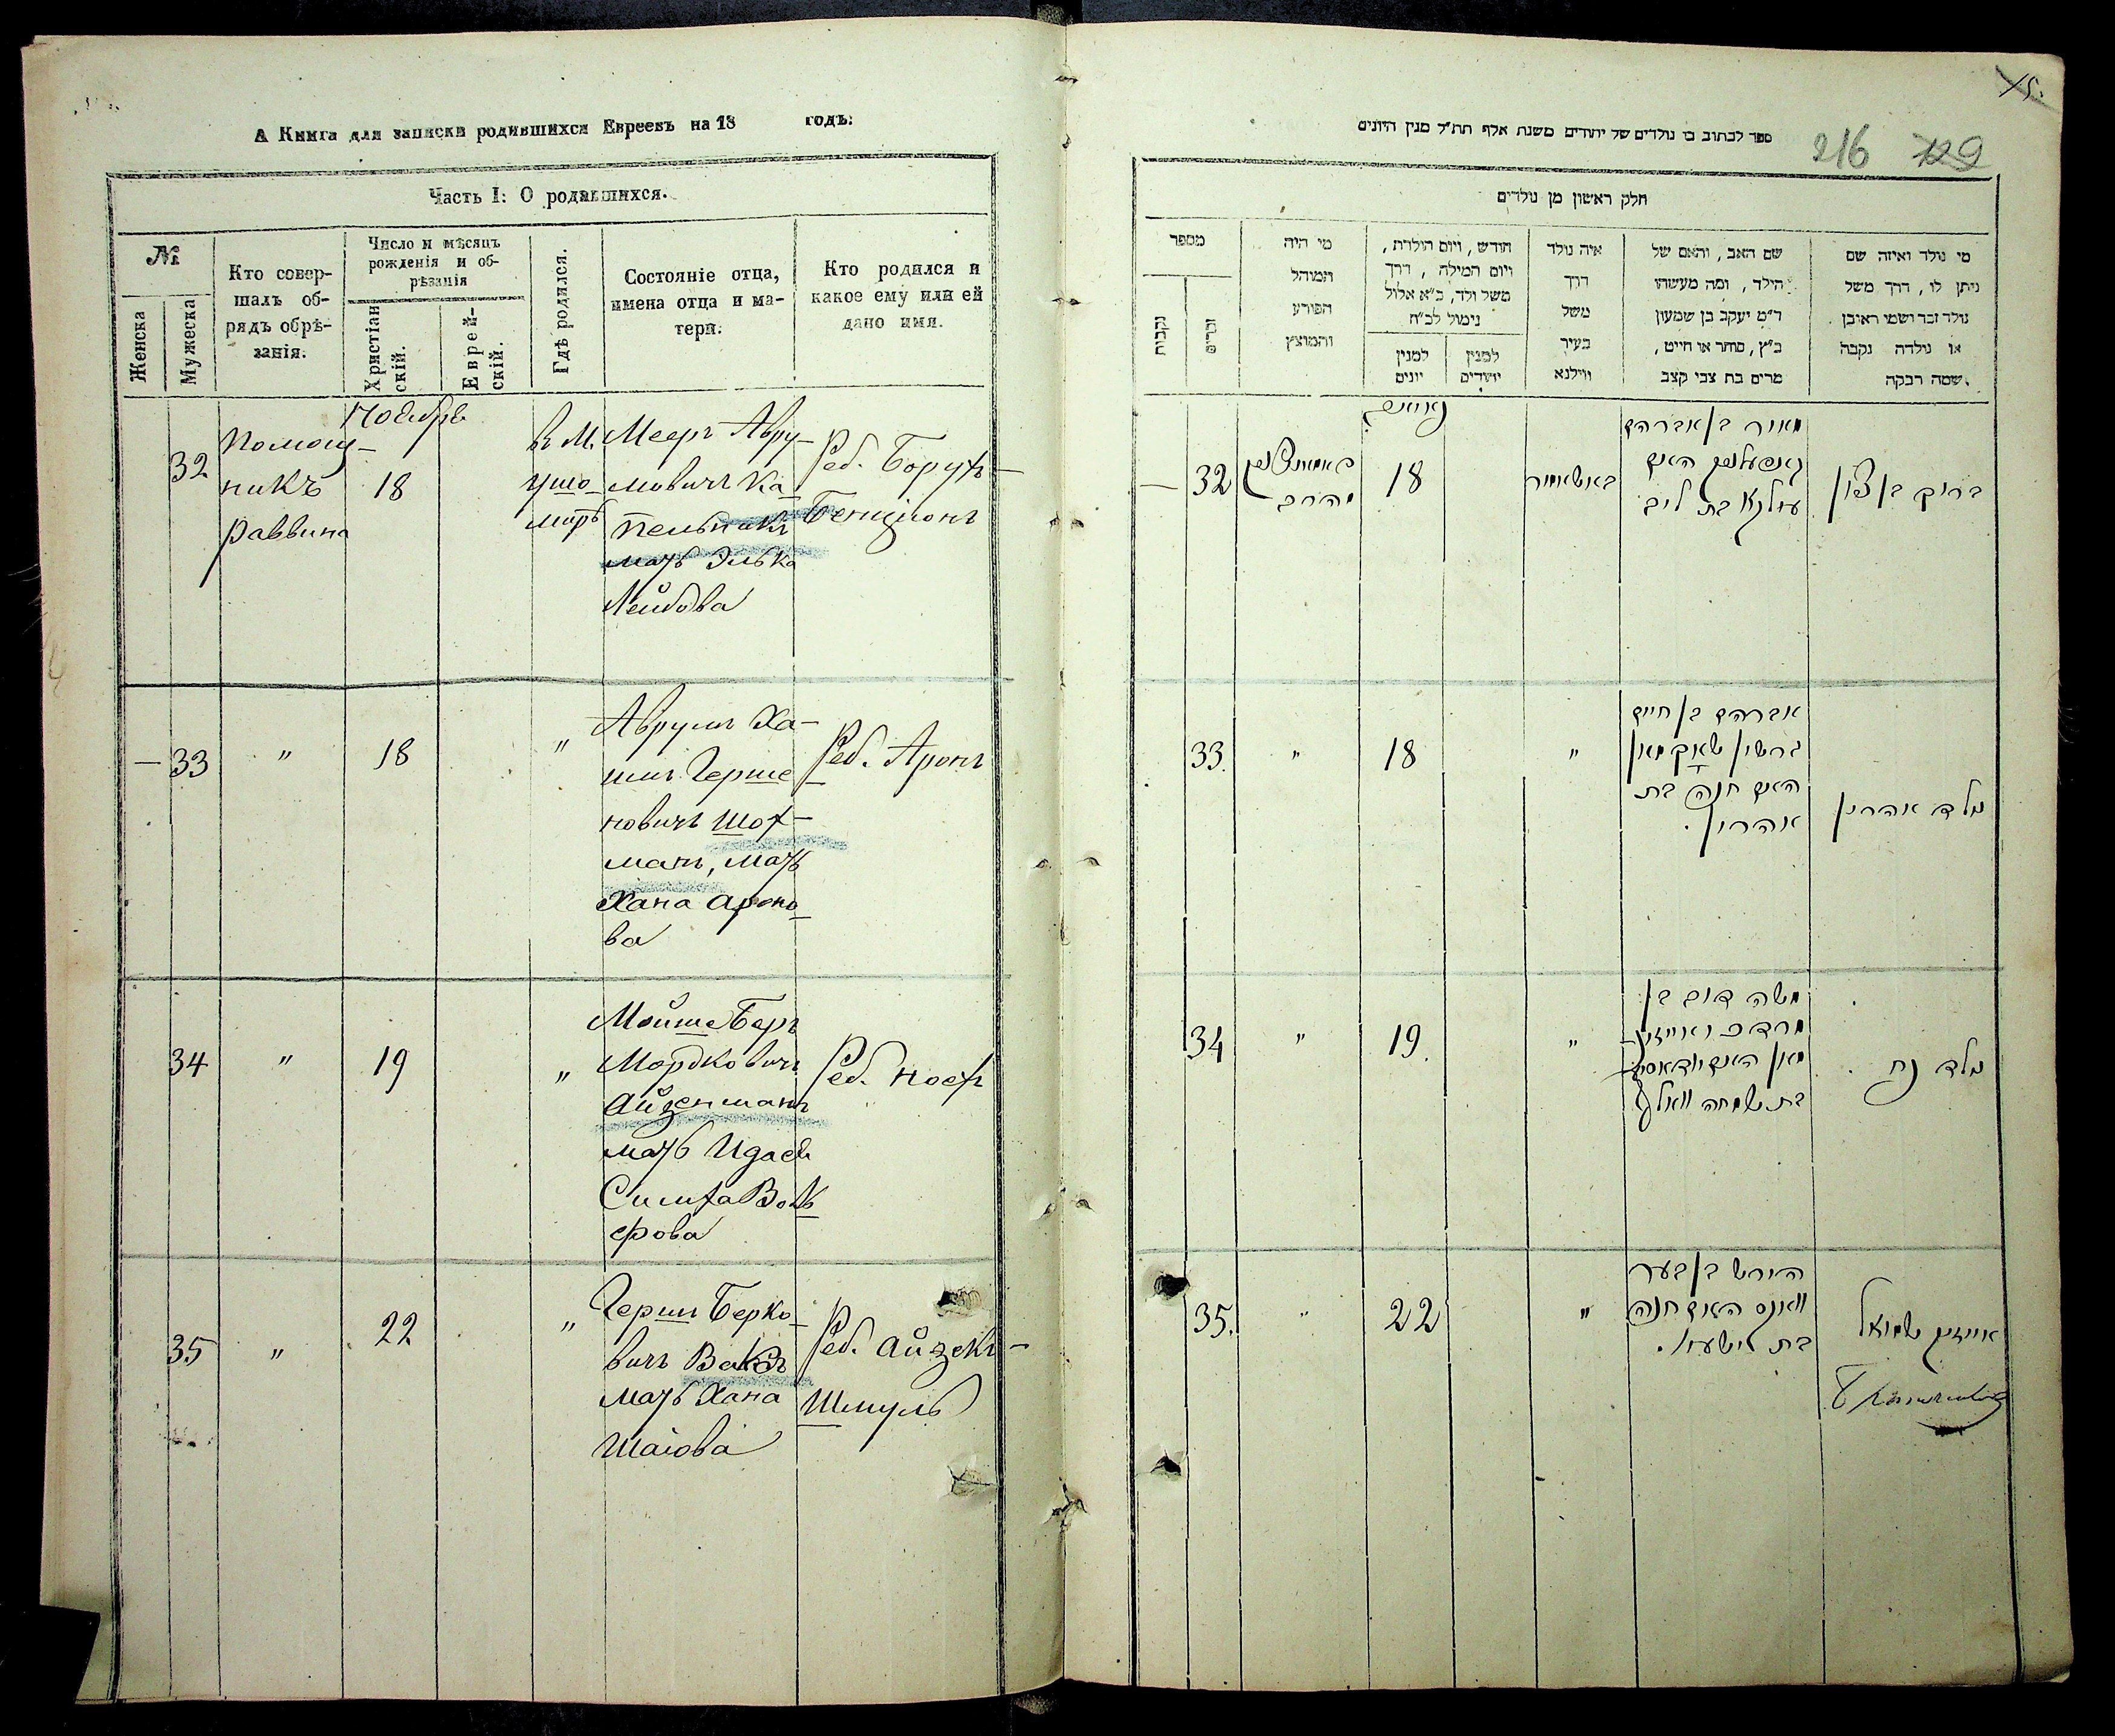 А Книга для записки родившихся Евреевъ на 18 годъ.
Часть I: О родившихся.
№
Женска
Мужеска
Кто совер-
шалъ об-
рядъ обрѣ-
занія.
Число и мѣсяцъ
рожденія и об-
рѣзанія
Христіан
скій.
Еврей-
скій.
Гдѣ родился.
Состояніе отца,
имена отца и ма-
тери.
Кто родился и
какое ему или ей
дано имя.
Ноябрь
32
Помощ-
никъ
раввина
18
в М.
Ушо
миръ
Меер Авру-
мович Ка
пельник
мать Элька
Лейбова
Реб. Борух-
Бенцион
33
"
18
"
Аврум Ха-
им Герше
нович Шох-
ман, мать
Хана Ароно
ва
Реб. Арон
34
"
19
"
Мойше Бер
Мордкович
Айзенман
мать
Симха Воль
фова
Реб. Ноех
35
"
22
"
Герш Берко
вич Вакс
мать Хана
Шаiова
Реб. Айзек-
Шмуль
216 729
ספר לכתוב בו נולדים של יהודים משנת אלף תת״ל מנין היונים
חלק ראשון מן נולדים
מספר
נקבות
זכרים
מי היה
המוהל
הפורע
והמוצץ
חודש, ויום הולדת,
ויום המילה, דרך
משל ולד, כ״א אלול
נימול לכ״ח
למנין
יונים
למנין
יהודים
איה נולד
דרך
משל
בעיר
ווילנא
שם האב, והאם של
הילד, ומה מעשהו
ד״מ יעקב בן שמעון
כ״ץ, סוחר או חייט,
מרים בת צבי קצב
מי נולד ואיזה שם
ניתן לו, דרך משל
נולד זכר ושמו ראובן
או נולדה נקבה
שמה רבקה
32
18
מאיר בן אברהם
האם
עלקא בת ליב
ברוך בן ציון
33
"
18
"
אברהם בן חיים
גרשון שאכמאן
האם חנה בת
אהרון.
ילד אהרן
34
"
19
"
משה דוב בן
מרדכי אייזין
מאן האם
בת שמחה וואלף
ילד נח
35
"
22
"
הירש בן בער
וואקס האם חנה
בת ישעיו.
אייזיק שמואל